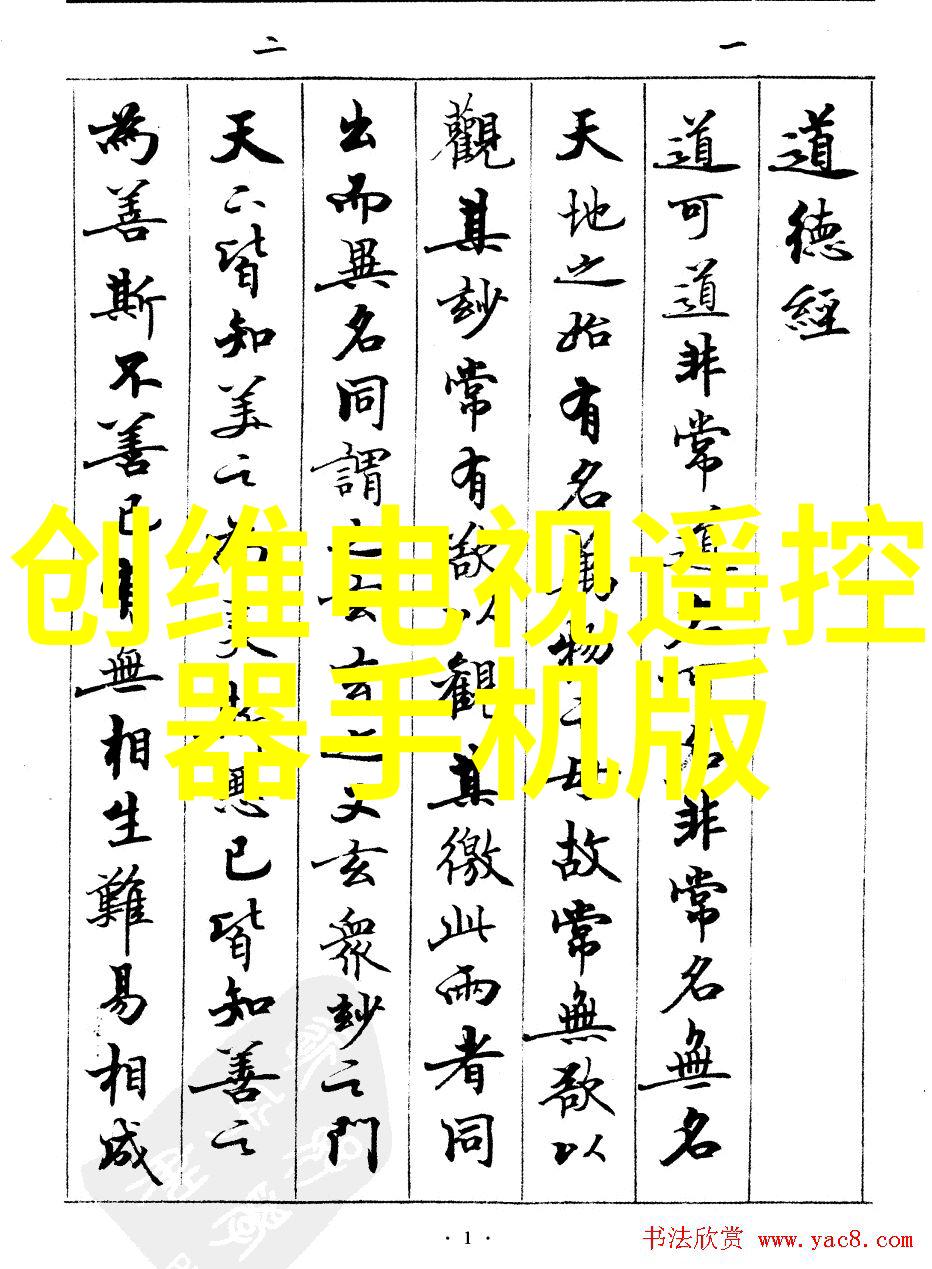 一
二
道德經
道可道非常道名可名非常名無名
天地之始有名萬物之母故常無欲以
觀其玅常有欲以觀其徼此兩者同
出而異名同謂之玄玄之又玄眾玅之門
天下皆知美之為美斯惡已皆知善之
為善斯不善已有無相生難易相成
创维电视遥控
器手机版
· 1 ·
书法欣赏 www.yac8.com